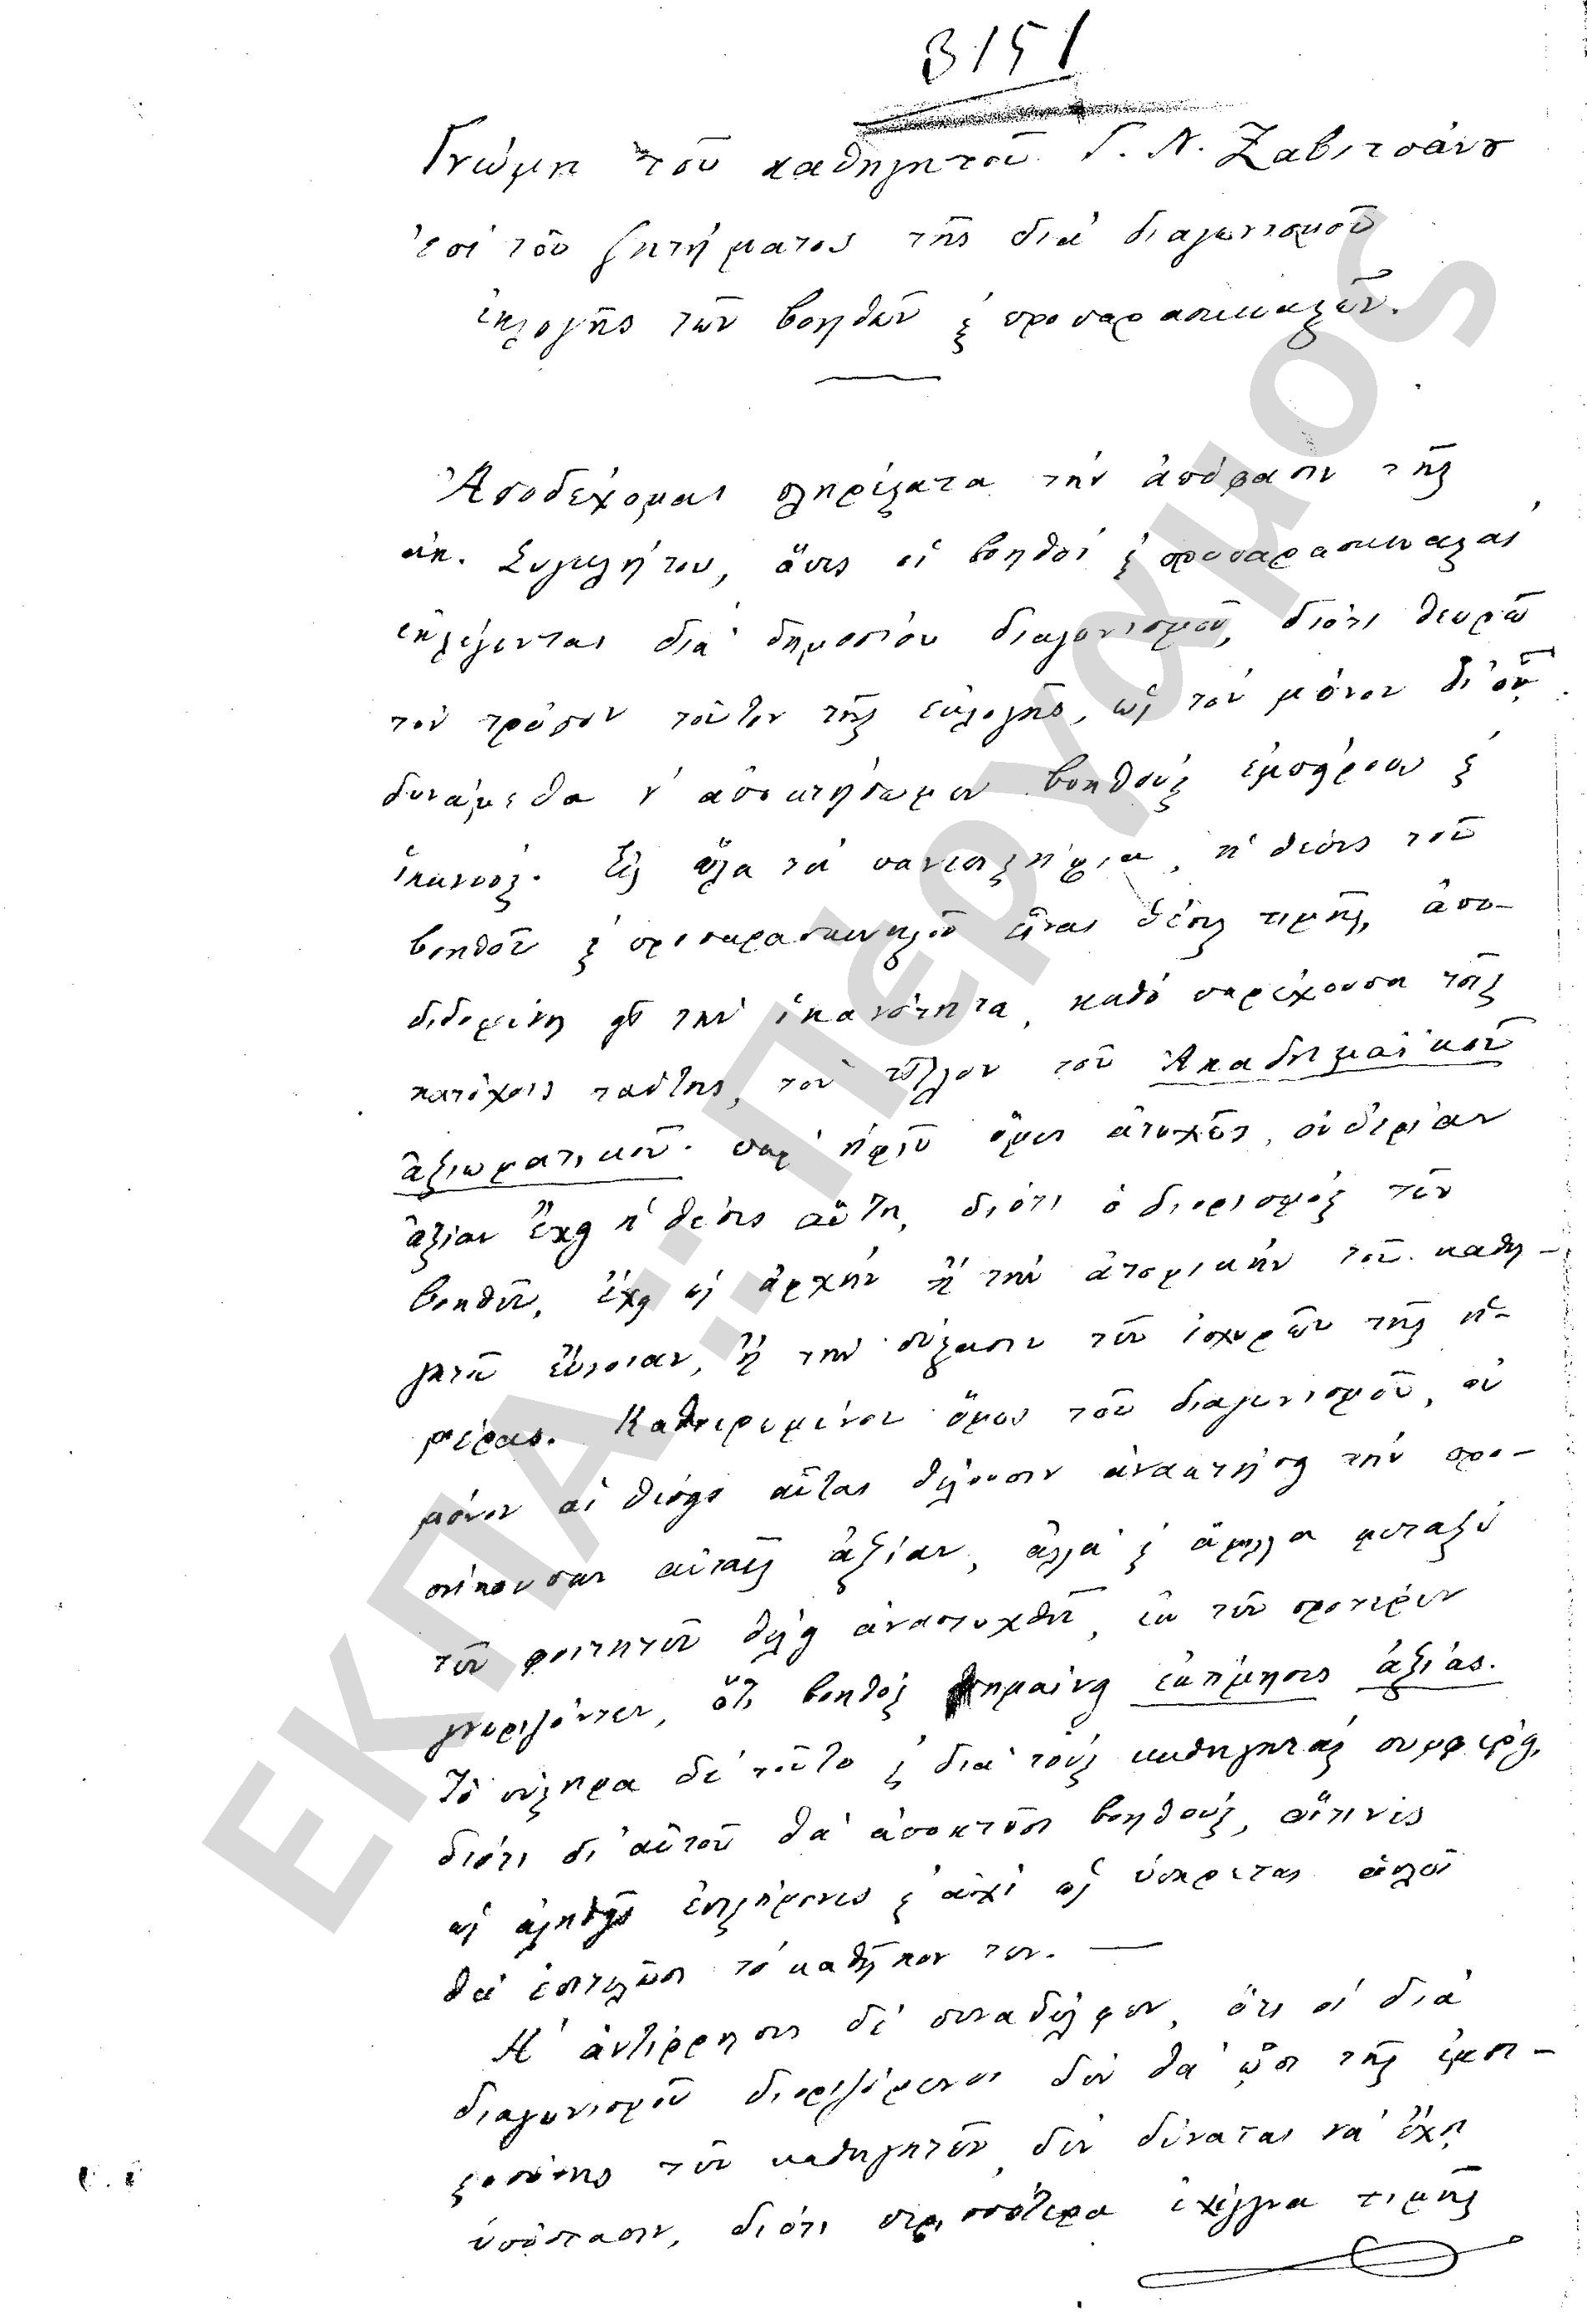 3151
Γνώμη τοῦ καθηγητοῦ Γ. Ν. Ζαβιτσάνου
ἐπὶ τοῦ ζητήματος τῆς διὰ διαγωνισμοῦ
ἐκλογῆς τῶν βοηθῶν ϗ προπαρασκευαστῶν.
Ἀποδέχομαι πληρέστατα τὴν ἀπόφασιν τῆς
ἀκ. Συγκλήτου, ὅπως οἱ βοηθοὶ ϗ προπαρασκευασταὶ
ἐκλέγωνται διὰ δημοσίου διαγωνισμοῦ, διότι θεωρῶ
τὸν τρόπον τοῦτον τῆς ἐκλογῆς, ὡς τὸν μόνον δι' οὗ
δυνάμεθα ν' ἀποκτήσωμεν βοηθοὺς ἐμπείρους ϗ
ἱκανούς. Εἰς ὅλα τὰ πανεπιστήμια, ἡ θέσις τοῦ
βοηθοῦ ϗ προπαρασκευαστοῦ εἶναι θέσις τιμῆς, ἀπο-
διδομένη εἰς τὴν ἱκανότητα, καθὸ παρέχουσα τοῖς
κατόχοις ταύτης, τὸν τίτλον τοῦ Ἀκαδημαϊκοῦ
ἀξιωματικοῦ. παρ' ἡμῖν ὅμως ἀτυχῶς, οὐδεμίαν
ἀξίαν ἔχει ἡ θέσις αὕτη, διότι ὁ διορισμὸς τῶν
βοηθῶν, ἔχει ὡς ἀρχὴν ἢ τὴν ἀτομικὴν τοῦ καθη-
γητοῦ εὔνοιαν, ἢ τὴν σύστασιν τῶν ἰσχυρῶν τῆς ἡ-
μέρας. Καθιερωμένου ὅμως τοῦ διαγωνισμοῦ, οὐ
μόνον αἱ θέσεις αὗται θέλουσιν ἀνακτήσει τὴν προ-
σήκουσαν αὐταῖς ἀξίαν, ἀλλὰ ϗ ἅμιλλα μεταξὺ
τῶν φοιτητῶν θέλει ἀναπτυχθῆ, ἐκ τῶν προτέρων
γνωριζόντων, ὅτι βοηθὸς σημαίνει ἐκτίμησις ἀξίας.
Τὸ σύστημα δὲ τοῦτο ϗ διὰ τοὺς καθηγητὰς συμφέρει,
διότι δι' αὐτοῦ θὰ ἀποκτῶσι βοηθούς, οἵτινες
ὡς ἀληθεῖς ἐπιστήμονες ϗ οὐχὶ ὡς ὑπηρέται ἁπλοῖ
θὰ ἐκτελῶσι τὸ καθῆκον των. —
Ἡ ἀντίρρησις δὲ συναδέλφων, ὅτι οἱ διὰ
διαγωνισμοῦ διοριζόμενοι δὲν θὰ ὦσι τῆς ἐμπι-
στοσύνης τῶν καθηγητῶν, δὲν δύναται νὰ ἔχῃ
ὑπόστασιν, διότι περισσότερα ἐχέγγυα τιμῆς
ΕΚΠΑ:Πέργαμος